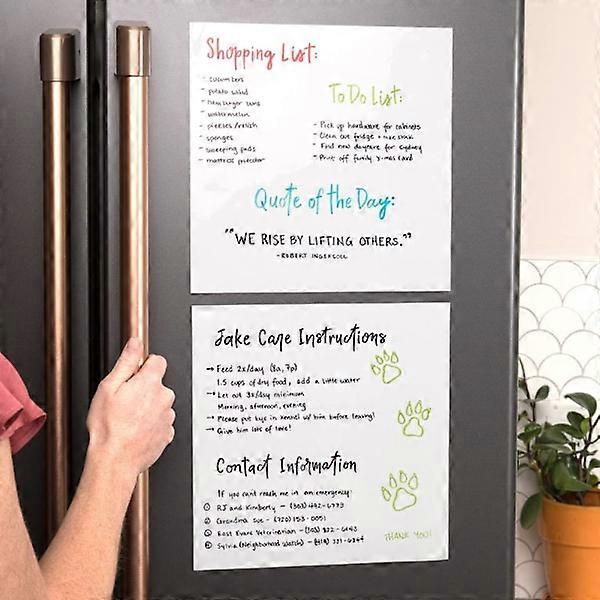 Shopping List:
- cucumbers
- potato salad
- hamburger buns
- watermelon
- pickles/relish
- sponges
- sweeping pads
- mattress protector
To Do List:
- Pick up hardware for cabinets
- Clean out fridge +
- Find new daycare for Sydney
- Print off family x-mas card
Quote of the Day:
"WE RISE BY LIFTING OTHERS."
- ROBERT INGERSOLL
Jake Care Instructions
→ Feed 2x/day (8a, 7p)
1.5 cups of dry food, add a little water
→ Let out 3x/day minimum
Morning, afternoon, evening
→ Please put bye in kennel w/ him before leaving!
→ Give him lots of love!
Contact Information
If you can't reach me in an emergency:
① RJ and Kimberly -
② Grandma Sue - (720)
③ East Evans Veterinarian - (303)
④ Sylvia (Neighborhood Watch) -
THANK YOU!